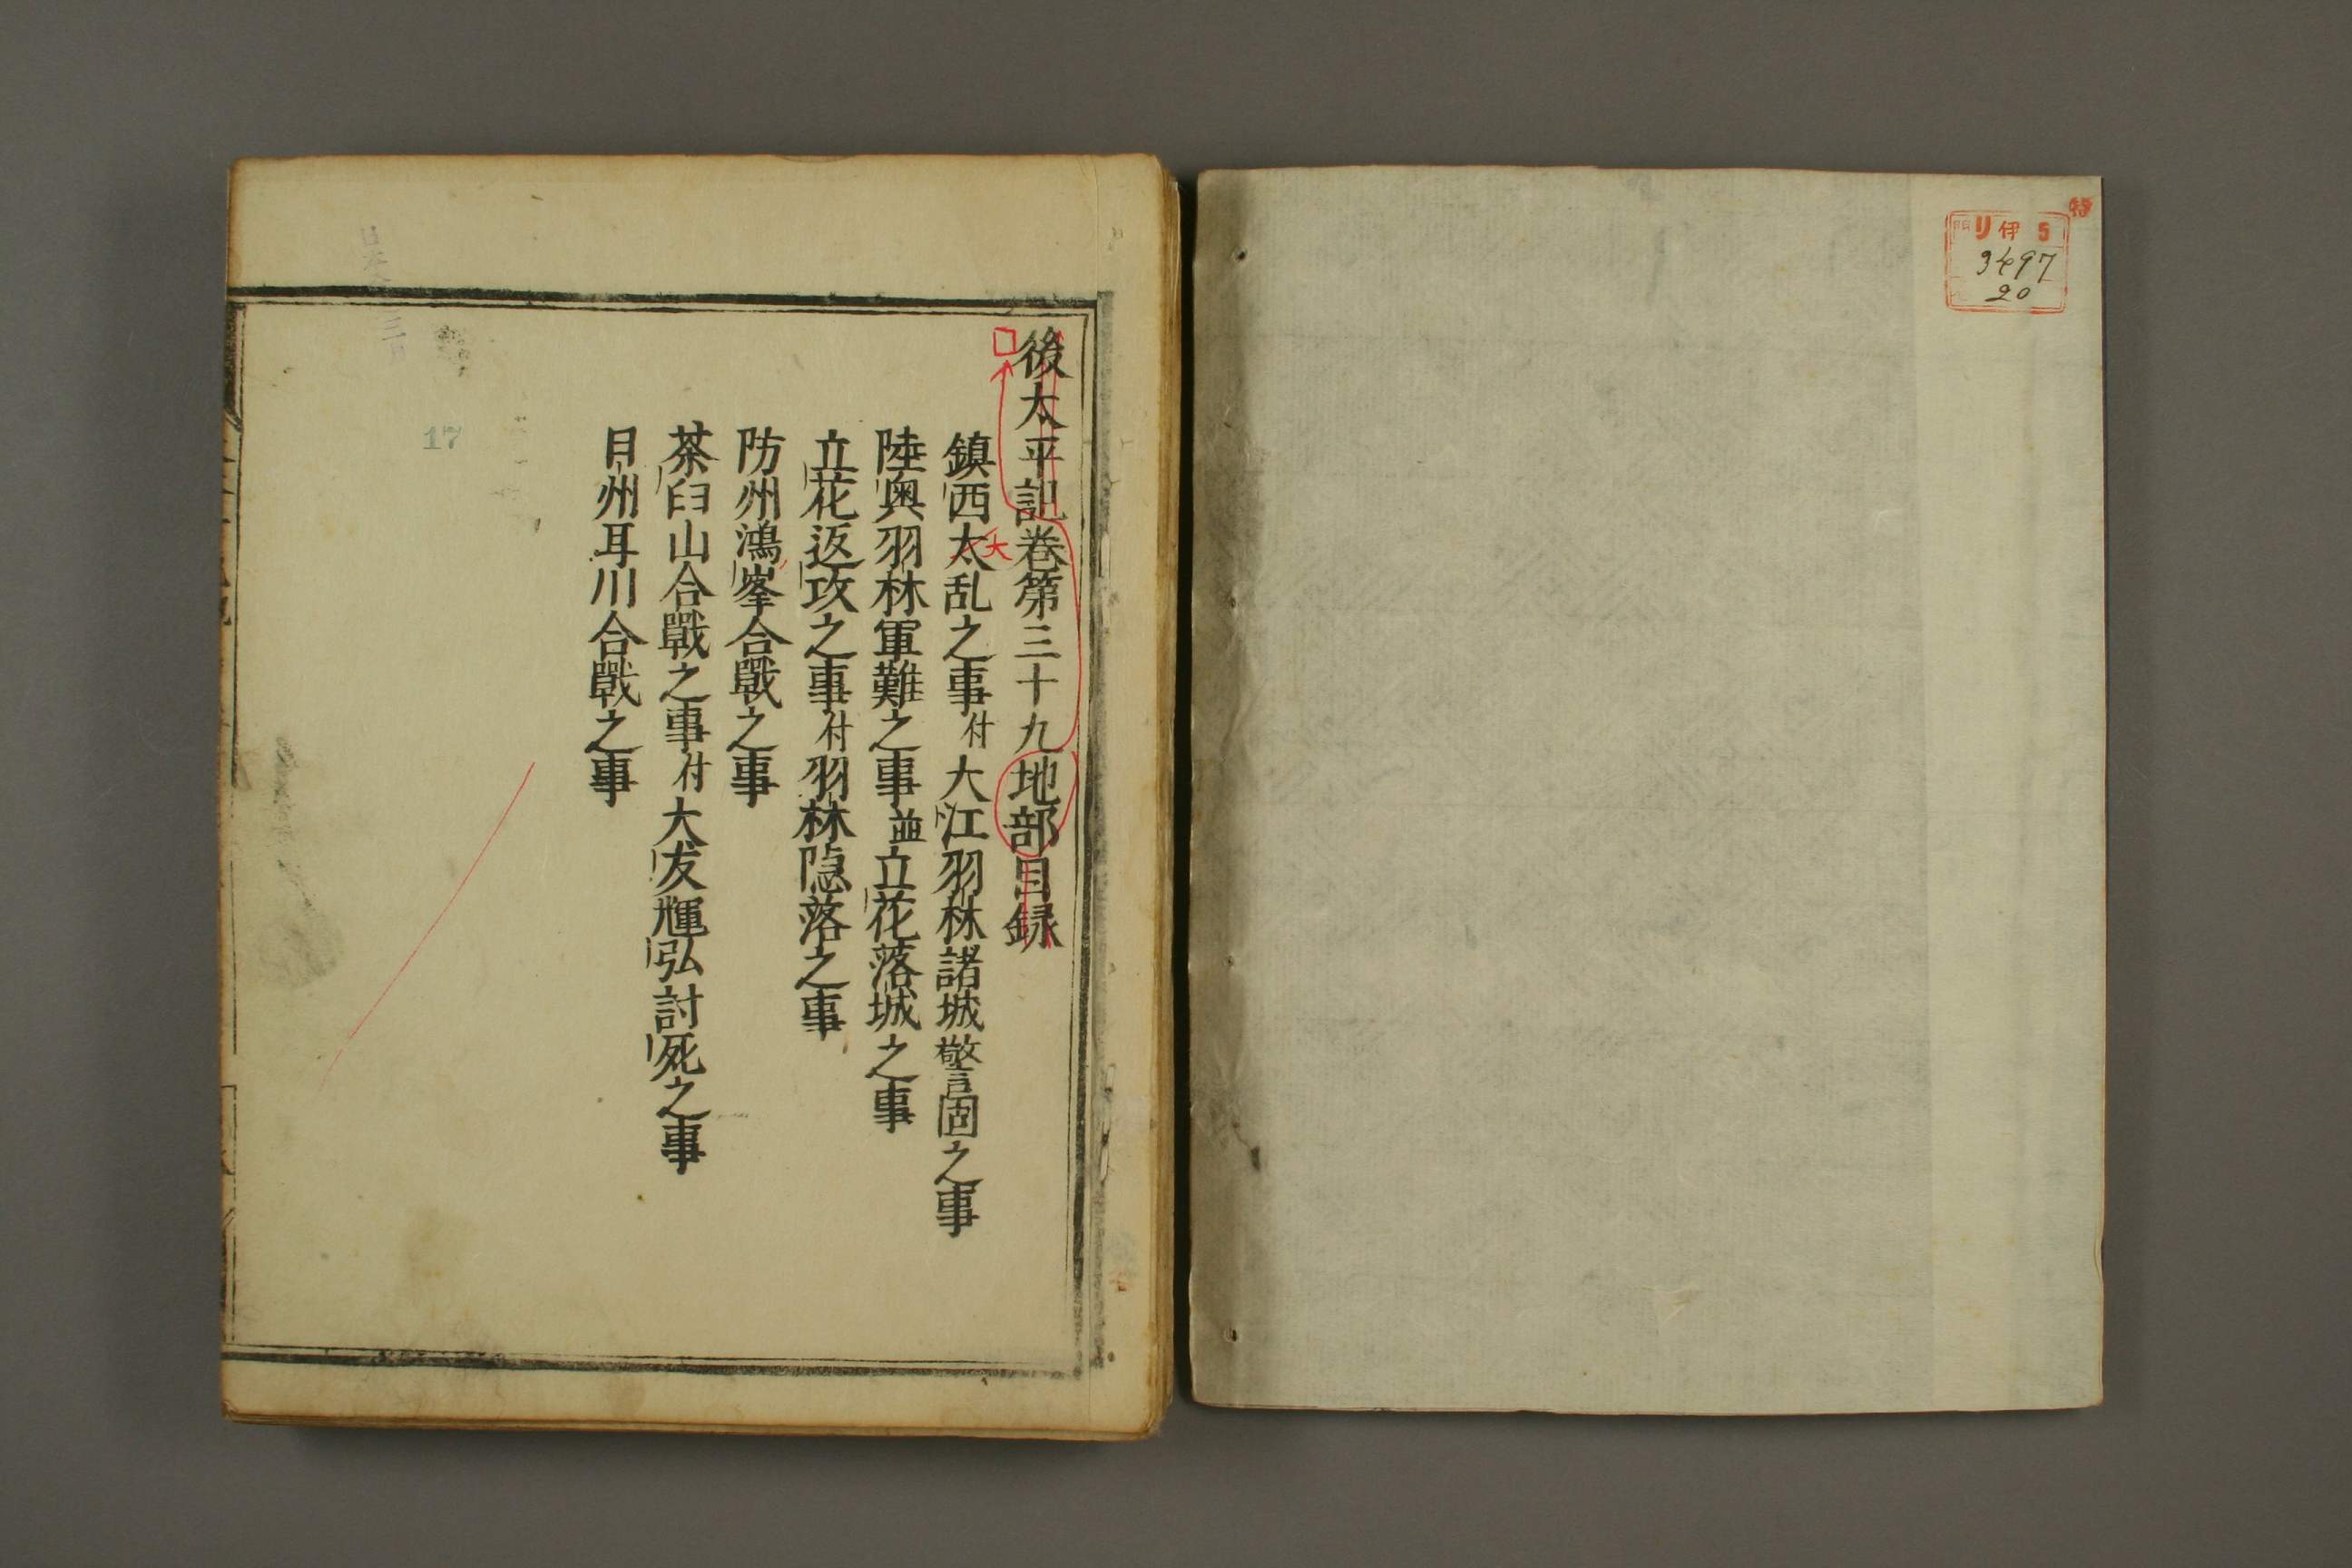 特
門 リ 伊 5
3497
20
後太平記卷第三十九地部目録
鎮西太乱之事付大江羽林諸城警固之事
大
陸奥羽林軍難之事並立花落城之事
立花返攻之事付羽林隠落之事
防州鴻峯合戰之事
茶臼山合戰之事付大友輝弘討死之事
日州耳川合戰之事
17